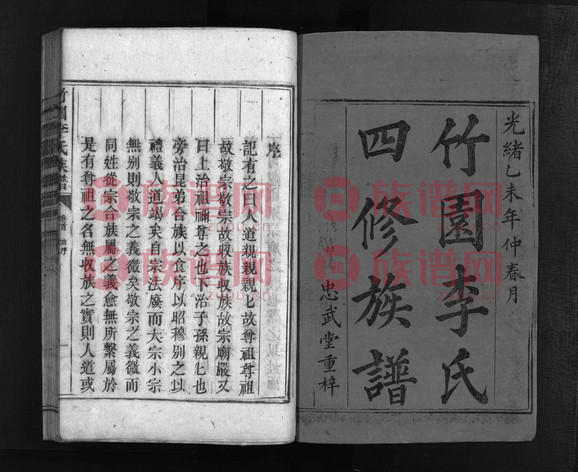 光緒乙未年仲春月
竹園李氏
四修族譜
忠武堂重梓
序
記有之曰人道親親親親故尊祖尊祖
故敬宗敬宗故收族收族故宗廟嚴又
曰上治祖禰尊之也下治子孫親之也
旁治昆弟合族以食序以昭穆別之以
禮義人道竭矣自宗法廢而大宗小宗
無別則敬宗之義微矣敬宗之義微而
同姓從宗合族屬之義愈無所繫屬於
是有尊祖之名無收族之實則人道或
竹園李氏族譜
卷首
序
一
族谱网
族谱网
族谱网
族谱网